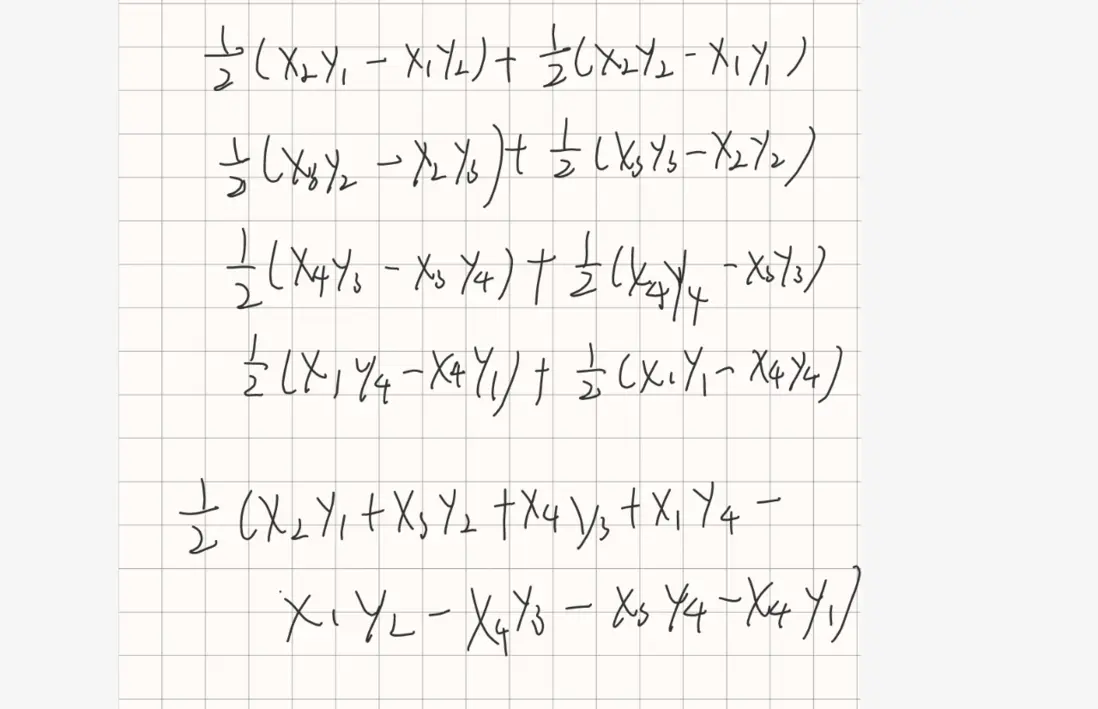 ½(X₂Y₁ − X₁Y₂) + ½(X₂Y₂ − X₁Y₁)
½(X₃Y₂ − X₂Y₃) + ½(X₃Y₃ − X₂Y₂)
½(X₄Y₃ − X₃Y₄) + ½(X₄Y₄ − X₃Y₃)
½(X₁Y₄ − X₄Y₁) + ½(X₁Y₁ − X₄Y₄)
½(X₂Y₁ + X₃Y₂ + X₄Y₃ + X₁Y₄ −
X₁Y₂ − X₄Y₃ − X₃Y₄ − X₄Y₁)